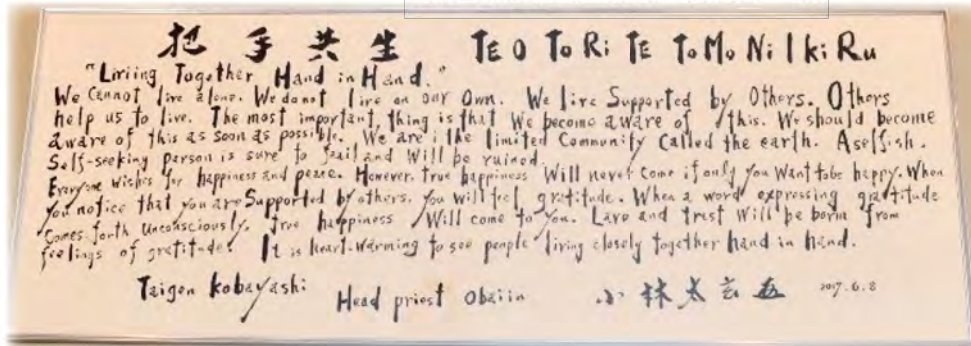 把手共生 TE O ToRi TE ToMo Ni IkiRu
"Liriing Together Hand in Hand."
We Cannot live alone. We do not live on our Own. We live Supported by Others. Others
help us to live. The most important, thing is that We become aware of this. We should become
aware of this as soon as possible. We are i the limited Community Called the earth. A selfish.
Self-seeking person is sure to fail and Will be ruined.
Everyone Wishes for happiness and peace. However, true happiness Will never Come if only you Want to be happy. When
you notice that you are Supported by others, you will feel gratitude. When a word expressing gratitude
Comes forth Unconsciously, true happiness Will come to you. Love and trest Will be born from
feelings of gratitude. It is heart-warming to see people living closely together hand in hand.
Taigen kobayashi Head priest Obaiin 小林太玄 2017.6.8